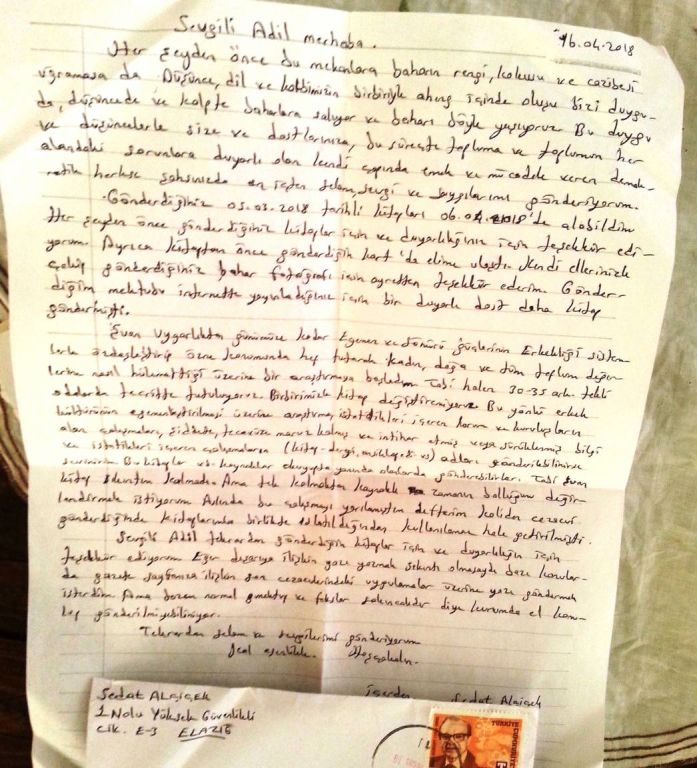 Sevgili Adil merhaba.
16.04.2018
Her şeyden önce bu mekanlara baharın rengi, kokusu ve cazibesi
uğramasa da Düşünce, dil ve kalbimizin birbiriyle aheng içinde oluşu bizi duygu-
da, düşüncede ve kalpte baharlara salıyor ve baharı böyle yaşıyoruz Bu duygu
ve düşüncelerle size ve dostlarınıza, bu süreçte topluma ve toplumun her
alandaki sorunlara duyarlı olan kendi çapında emek ve mücadele veren demok-
ratik herkese şahsınızda en içten selam, sevgi ve saygılarımı gönderiyorum.
Gönderdiğiniz 05.03.2018 tarihli kitapları 06.04.2018'de alabildim
Her şeyden önce gönderdiğiniz kitaplar için ve duyarlılığınız için teşekkür edi-
yorum. Ayrıca kitaptan önce gönderdiğin kart'da elime ulaştı. Kendi ellerinizle
çekip gönderdiğiniz bahar fotoğrafı için ayrıetten teşekkür ederim. Gönder-
diğim mektubu internette yayınladığınız için bir duyarlı dost daha kitap
göndermişti.
Şuan uygarlıktan günümüze kadar Egemen ve Sömürü güçlerinin Erkekliği sistem-
lerle özdeşleştirip özne konumunda hep tutarak kadın, doğa ve tüm toplum değer-
lerine nasıl hükmettiği üzerine bir araştırmaya başladım Tabi halen 30-35 ark. tekli
odalarda tecritte tutuluyoruz. Birbirimizle kitap değiştiremiyoruz Bu yönlü erkek
kültürünün egemenleştirilmesi üzerine araştırma, istatistikleri içeren kurum ve kuruluşların
olan çalışmaları, şiddete, tecavüze maruz kalmış ve intihar etmiş veya sürüklenmiş bilgi
ve istatikleri içeren çalışmaların (kitap-dergi, vs) adları gönderebilirseniz
sevinirim Bu kitaplar vb. kaynaklar olanlarda gönderebilirler. Tabi şuan
kitap sıkıntım kalmadı. Ama tek kalmaktan kaynaklı zamanın bolluğunu değer-
lendirmek istiyorum Aslında bu çalışmayı yarılamıştım defterim cezaevi
gönderdiğinde kitaplarımla birlikte ıslatıldığından kullanılamaz hale getirilmişti.
Sevgili Adil tekrardan gönderdiğin kitaplar için ve duyarlılığın için
teşekkür ediyorum Eğer dışarıya ilişkin yazı yazmak sıkıntı olmasaydı bazı konular-
da gazete sayfanıza ilişkin şuan cezaevlerindeki uygulamalar üzerine yazı göndermek
isterdim. Ama bazen normal mektup ve fakslar sakıncalıdır diye kurumda el konu-
lup gönderilmiyebiliniyor.
Tekrardan selam ve sevgilerimi gönderiyorum
Hoşçakalın.
içerden Sedat Algiçek
Sedat ALGİÇEK
1 Nolu Yüksek Güvenlikli
Cik. E-3 ELAZIĞ
TÜRKİYE
CUMHURİYETİ